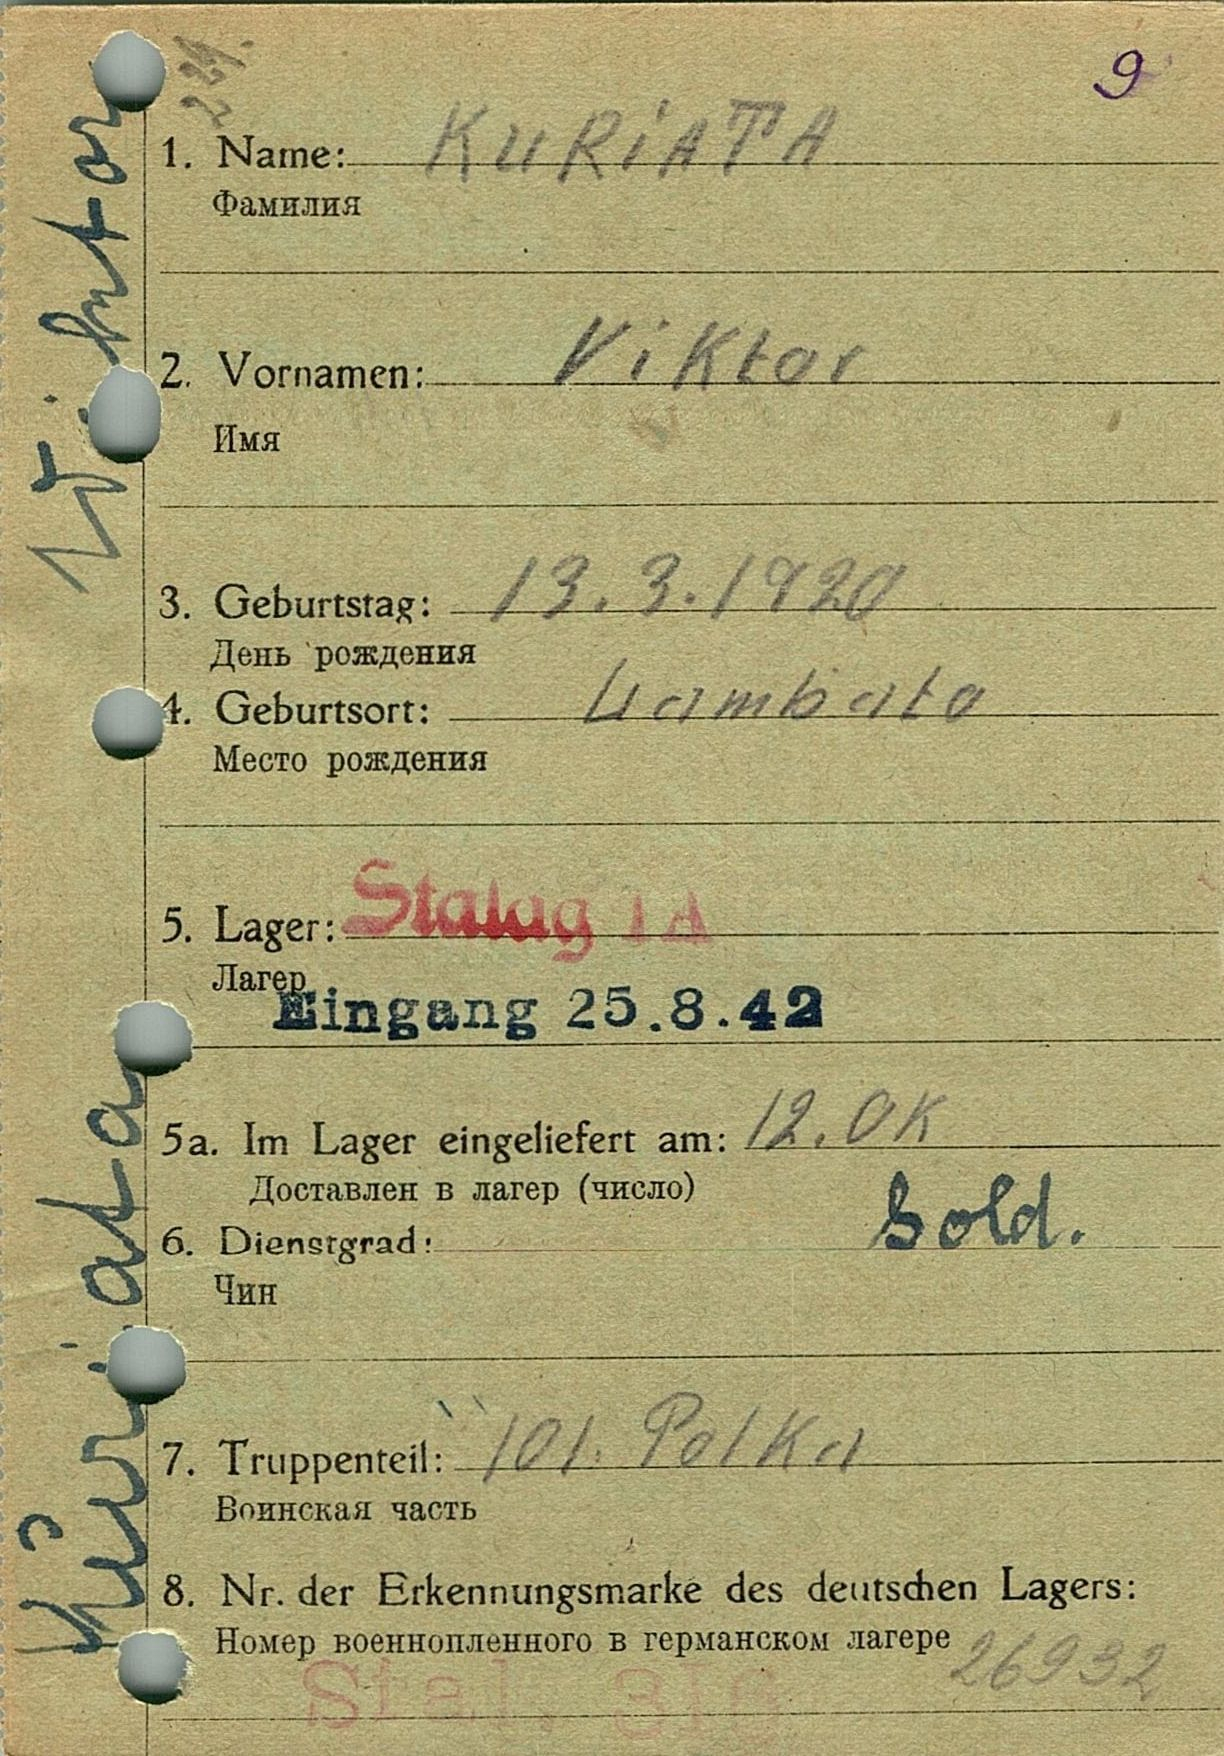 9
221.
1. Name: KURiATA
Фамилия
2. Vornamen: Viktor
Имя
3. Geburtstag: 13.3.1920
День рождения
4. Geburtsort: Uambata
Место рождения
5. Lager: Stalag IA
Лагер
Eingang 25.8.42
5a. Im Lager eingeliefert am: 12. OK
Доставлен в лагер (число)
6. Dienstgrad: Sold.
Чин
7. Truppenteil: 101. Polka
Воинская часть
8. Nr. der Erkennungsmarke des deutschen Lagers:
Номер военнопленного в германском лагере 26932
Stal.
Kuriata Viktor